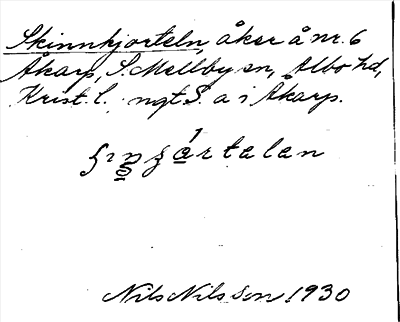 Skinnkjorteln, åker å nr. 6
Åkarp, S. Mellby sn, Albo hd,
Krist. l. ngt S. a i Åkarp.
Nils Nilsson 1930